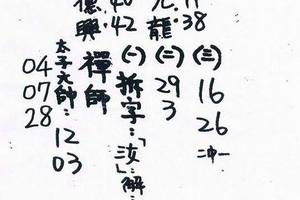 德興：42
龍：38
04
07
28
太子元師：12
03
禪師
(一)拆字：「汝」：解：
(二)
29
3
(三)
16
26
二中一